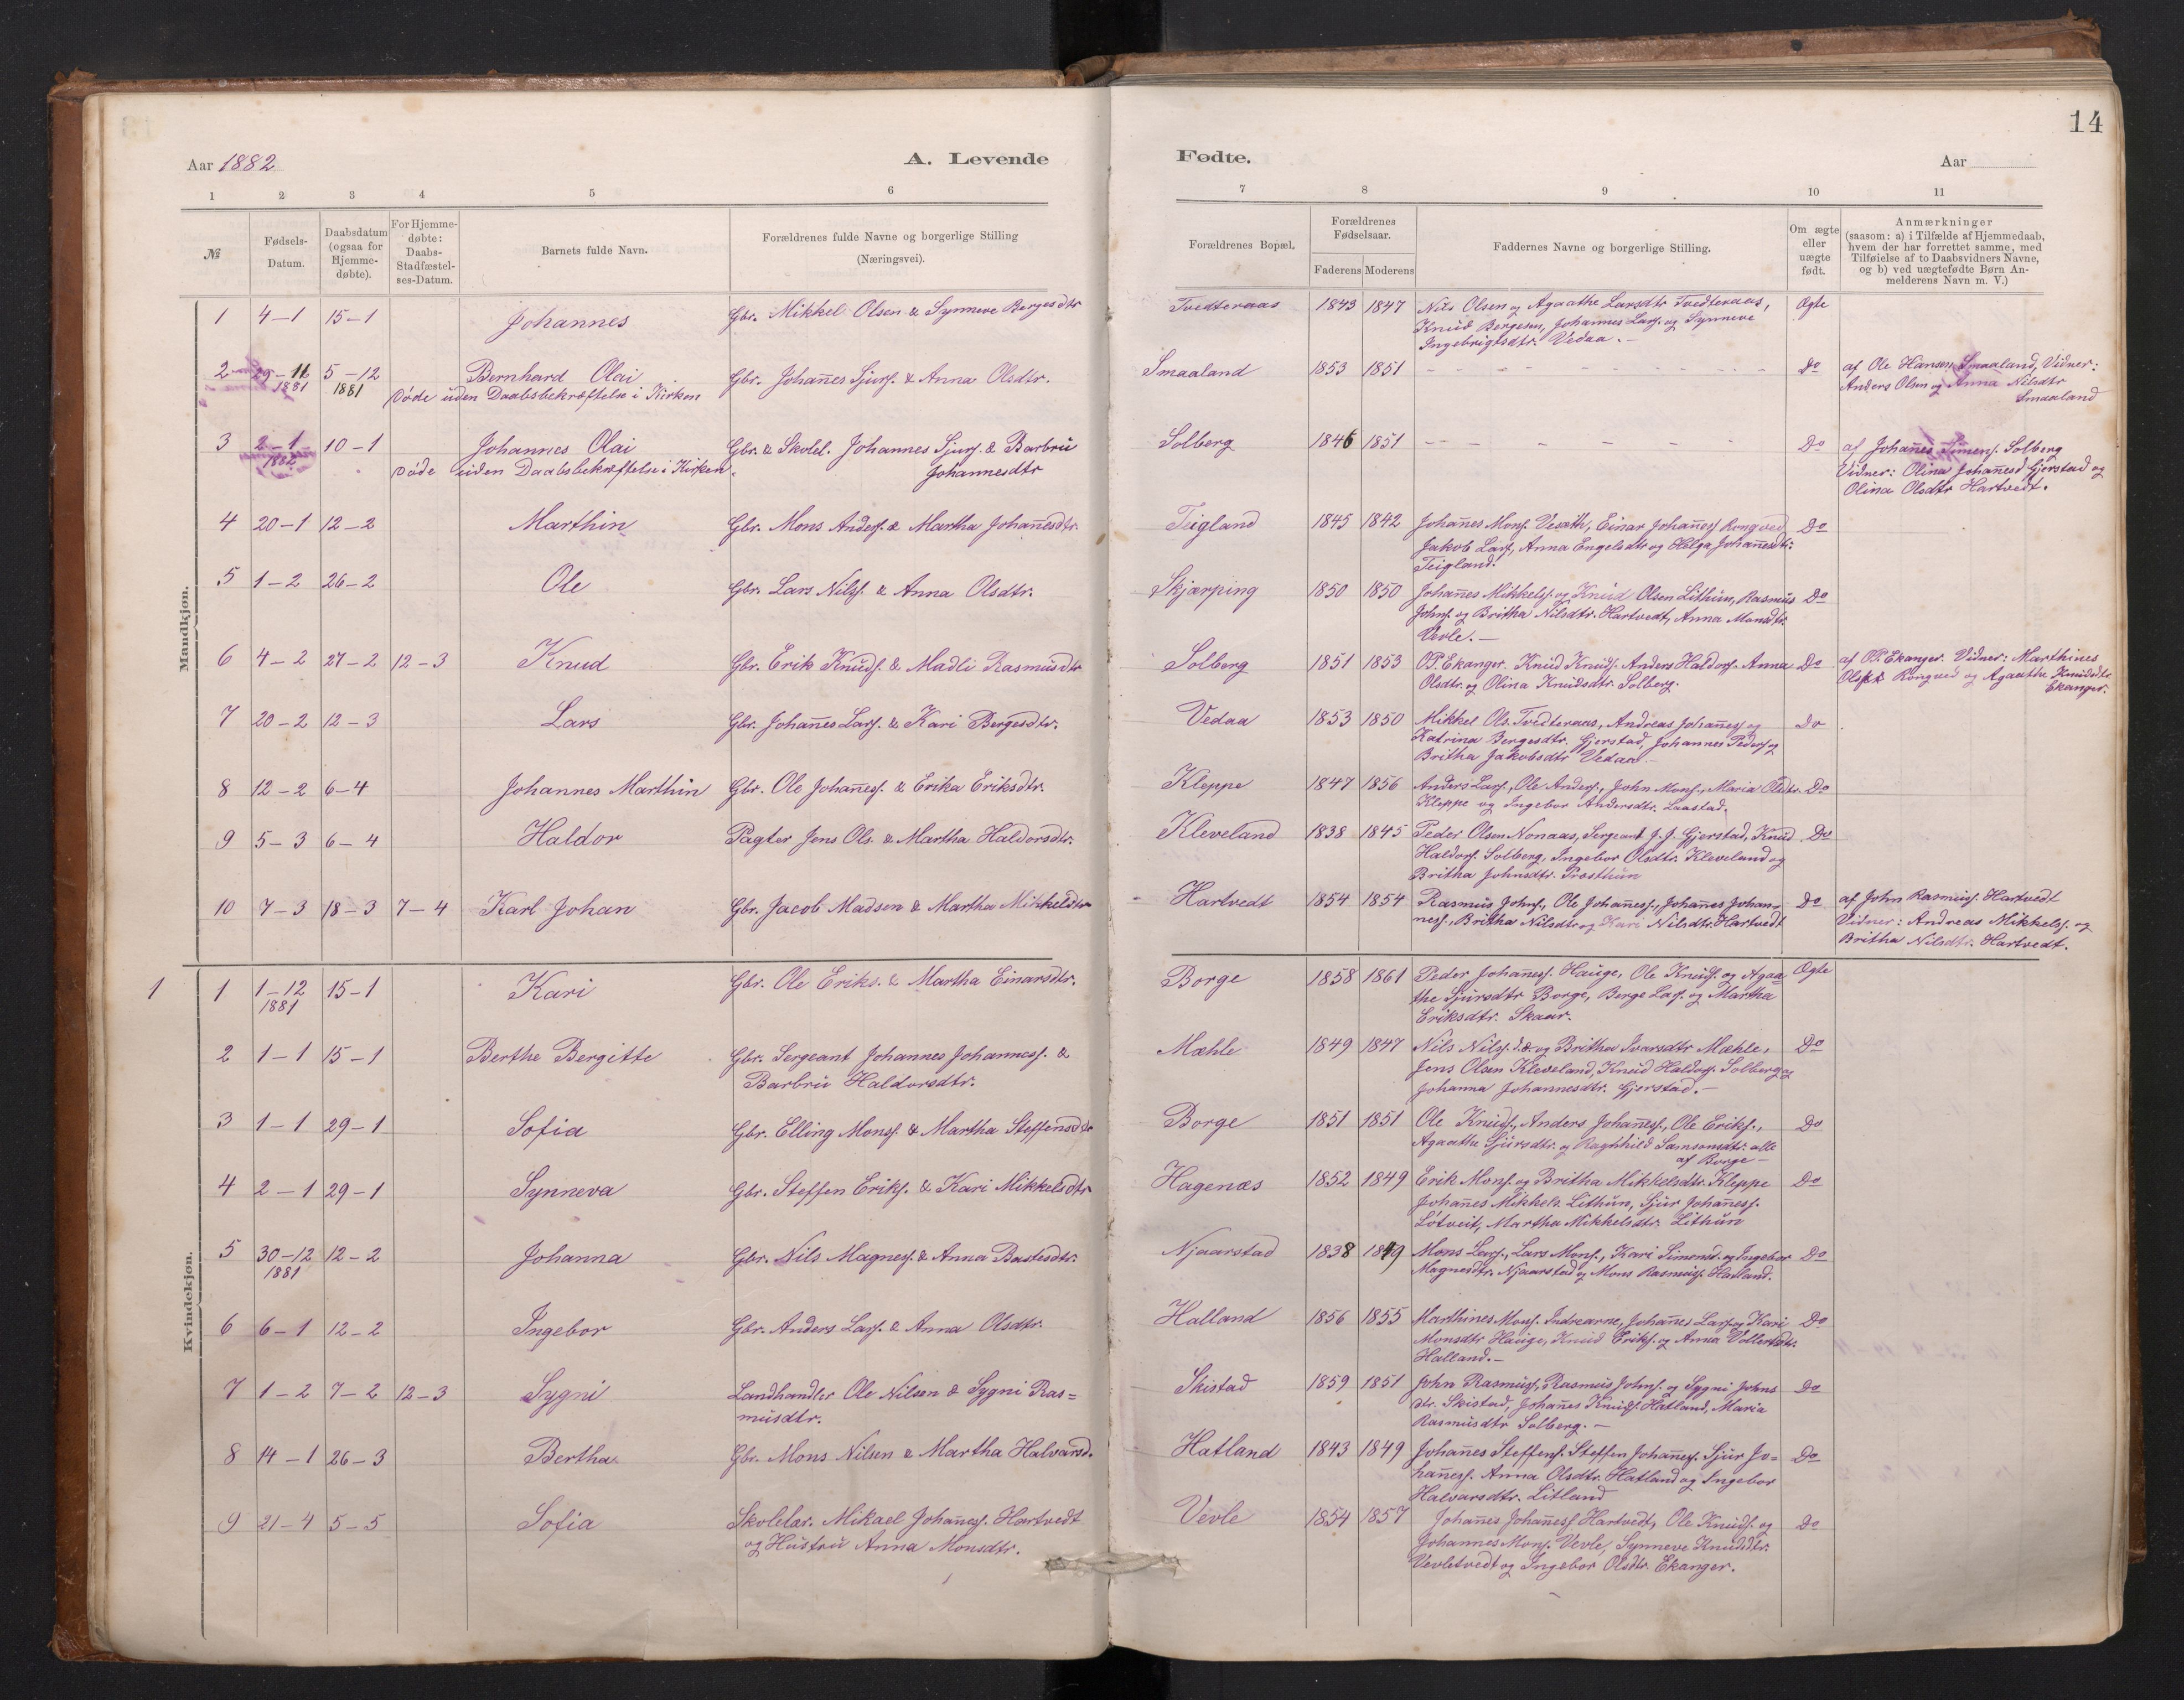 14
Aar 1882
A. Levende
Fødte.
Aar
1 2 3 4 5 6 7 8 9 10 11
№
Fødsels-Datum.
Daabsdatum (ogsaa for Hjemme-døbte).
For Hjemme-døbte: Daabs-Stadfæstel-ses-Datum.
Barnets fulde Navn.
Forældrenes fulde Navne og borgerlige Stilling
(Næringsvei).
Forældrenes Bopæl.
Forældrenes Fødselsaar.
Faderens Moderens
Faddernes Navne og borgerlige Stilling.
Om ægte eller uægte født.
Anmærkninger
(saasom: a) i Tilfælde af Hjemmedaab,
hvem der har forrettet samme, med
Tilføielse af to Daabsvidners Navne,
og b) ved uægtefødte Børn An-
melderens Navn m. V.)
Mandkjøn.
1 4-1 15-1 Johannes Gbr. Mikkel Olsen & Synneve Bergesdtr Tvedteraas 1843 1847 Nils Olsen og Agaathe Larsdtr Tvedteraas, Ægte
Knud Bergesen, Johannes Lars. og Synneve
Ingebrigtsdtr. Vedaa. -
2 29-11 1881 5-12 1881 Bernhard Olai Gbr. Johañes Sjurs. & Anna Olsdtr. Smaaland 1853 1851 Do af Ole Hansen Smaaland, Vidner:
Døde uden Daabsbekræftelse i Kirken
Anders Olsen og Anna Nilsdtr
Smaaland
3 2-1 1882 10-1 Johannes Olai Gbr. & Skolel. Johannes Sjurs. & Barbru Solberg 1846 1851 Do af Johañes Simens. Solberg
Døde uden Daabsbekræftelse i Kirken. Johannesdtr
Vidner: Olina Johañesd Gjerstad og
Olina Olsdtr Hartvedt.
4 20-1 12-2 Marthin Gbr. Mons Anders. & Martha Johañesdtr. Teigland 1845 1842 Johañes Mons. Veseth, Einar Johañes. Rongved Do
Jakob Lars., Anna Engelsdtr og Helga Johañesdtr.
Teigland.
5 1-2 26-2 Ole Gbr. Lars Nils. & Anna Olsdtr. Skjærping 1850 1850 Johañes Mikkels. og Knud Olsen Lithun, Rasmus Do
Johns. og Britha Nilsdtr. Hartvedt, Anna Monsdtr.
Vevle. -
6 4-2 27-2 12-3 Knud Gbr. Erik Knuds. & Madli Rasmusdtr Solberg 1851 1853 OP. Ekanger. Knud Knuds. Anders Haldors. Anna Do af OP. Ekanger. Vidner: Marthines
Olsdtr. og Olina Knudsdtr. Solberg.
Rongved og Agaathe Knudsdtr
Ekanger.
7 20-2 12-3 Lars Gbr. Johañes Lars. & Kari Bergesdtr. Vedaa 1853 1850 Mikkel Ols. Tvedteraas, Andreas Johañes. og Do
Katrina Bergesdtr. Gjerstad, Johannes Peders. og
Britha Jakobsdtr Vedaa -
8 12-2 6-4 Johannes Marthin Gbr. Ole Johañes. & Erika Eriksdtr. Kleppe 1847 1856 Anders Lars., Ole Anders., John Mons., Maria Olsdtr. Do
Kleppe og Ingebor Andersdtr. Laastad.
9 5-3 6-4 Haldor Pagter Jens Ols. & Martha Haldorsdtr. Kleveland 1838 1845 Peder Olsen Nonaas, Sergeant J. J. Gjerstad, Knud Do
Haldors. Solberg, Ingebor Olsdtr. Kleveland og
Britha Johnsdtr. Præsthun
10 7-3 18-3 7-4 Karl Johan Gbr. Jacob Madsen & Martha Mikkelsdtr Hartvedt 1854 1854 Rasmus Johns., Ole Johañes., Johañes Johan- Do af John Rasmus. Hartvedt
nes., Britha Nilsdtr og Kari Nilsdtr. Hartvedt
Vidner: Andreas Mikkels. og
Britha Nilsdtr. Hartvedt.
Kvindekjøn.
1 1 1-12 1881 15-1 Kari Gbr. Ole Eriks. & Martha Einarsdtr. Borge 1858 1861 Peder Johañes. Hauge, Ole Knuds. og Agaa- Ægte
the Sjursdtr Borge, Berge Lars. og Martha
Eriksdtr. Skaar.
2 1-1 15-1 Berthe Bergitte Gbr. Sergeant Johannes Johannes. & Mæhle 1849 1847 Nils Nils. og Britha Ivarsdtr Mæhle, Do
Barbru Haldorsdtr.
Jens Olsen Kleveland, Knud Haldors. Solberg og
Johanna Johannesdtr. Gjerstad. -
3 1-1 29-1 Sofia Gbr. Elling Mons. & Martha Steffensdtr Borge 1851 1851 Ole Knuds., Anders Johañes., Ole Eriks., Do
Agaathe Sjursdtr. og Raghhild Samsonsdtr. alle
af Borge -
4 2-1 29-1 Synneva Gbr. Steffen Eriks. & Kari Mikkelsdtr Hagenæs 1852 1849 Erik Mons. og Britha Mikkelsdtr. Kleppe Do
Johañes Mikkels. Lithun, Sjur Johañes.
Løtveit, Martha Mikkelsdtr. Lithun
5 30-12 1881 12-2 Johanna Gbr. Nils Magnes. & Anna Bastesdtr. Njaarstad 1838 1849 Mons Lars., Lars Mons., Kari Simensd. og Ingebor Do
Magnesdtr. Njaarstad og Mons Rasmus. Hatland.
6 6-1 12-2 Ingebor Gbr. Anders Lars. & Anna Olsdtr. Halland 1856 1855 Marthines Mons. Indrearne, Johañes Lars. og Kari Do
Monsdtr Hauge, Knud Eriks. og Anna Vollertsdtr.
Halland. -
7 1-2 7-2 12-3 Sygni Landhandler Ole Nilsen & Sygni Ras= Skistad 1859 1851 John Rasmus., Rasmus Johns. og Sygni Johns Do
musdtr.
dtr. Skistad, Johañes Knuds. Hatland, Maria
Rasmusdtr Solberg. -
8 14-1 26-3 Bertha Gbr. Mons Nilsen & Martha Halvarsd. Hatland 1843 1849 Johañes Steffens. Steffen Johañes. Sjur Jo= Do
hañes. Anna Olsdtr. Hatland og Ingebor
Halvarsdtr. Litland
9 21-4 5-5 Sofia Skolelær. Mikael Johañes. Hartvedt Vevle 1854 1857 Johañes Johañes. Hartvedt, Ole Knuds. og Do
og Hustru Anna Monsdtr.
Johannes Mons. Vevle, Synneve Knudsdtr.
Vevletvedt og Ingebor Olsdtr. Ekanger.